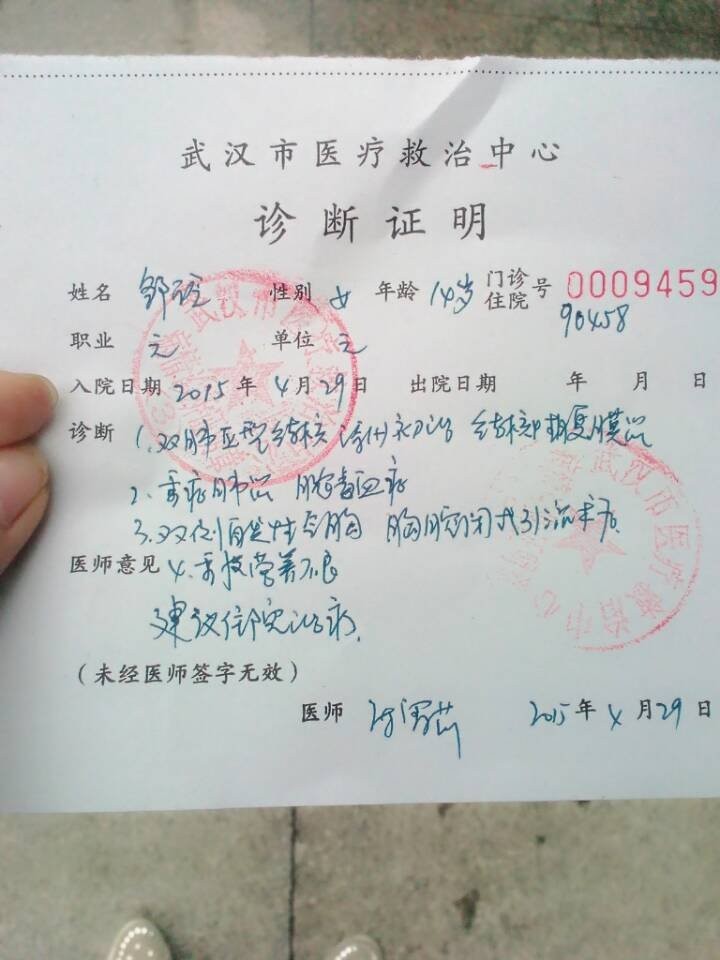 武汉市医疗救治中心
诊断证明
姓名 邹 性别 女 年龄 14岁 门诊 住院 号 0009459
90458
职业 无 单位 无
入院日期 2015年4月29日 出院日期 年 月 日
诊断 1.双肺Ⅲ型结核 涂(-) 初治 结核 腹膜炎
2.重症肺炎 脓毒血症
3.双侧自发性气胸 胸腔闭式引流术后
医师意见 4.重度营养不良
建议住院治疗.
(未经医师签字无效)
医师 2015年4月29日
武汉市医疗救治中心